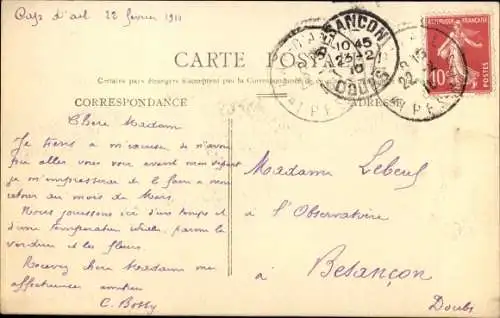 Cap d'ail 22 février 1911
CARTE POSTALE
Certains pays étrangers n'acceptent pas la Correspondance
CORRESPONDANCE
ADRESSE
RÉPUBLIQUE FRANÇAISE
10
POSTES
BESANÇON
10 45
23-2
DOUBS
Chère Madame
Je tiens à m'excuser de n'avoir
pu aller vous voir avant mon départ
je m'empresserai de le faire à mon
retour au mois de Mars.
Nous jouissons ici d'un temps et
d'une température idéale, parmi la
verdure et les fleurs.
Recevez chère Madame mes
affectueuses amitiés
C. Bossy
Madame Lebeuf
à l'Observatoire
à Besançon
Doubs